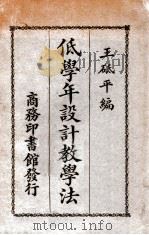 王砥平編
低學年設計教學法
商務印書館發行